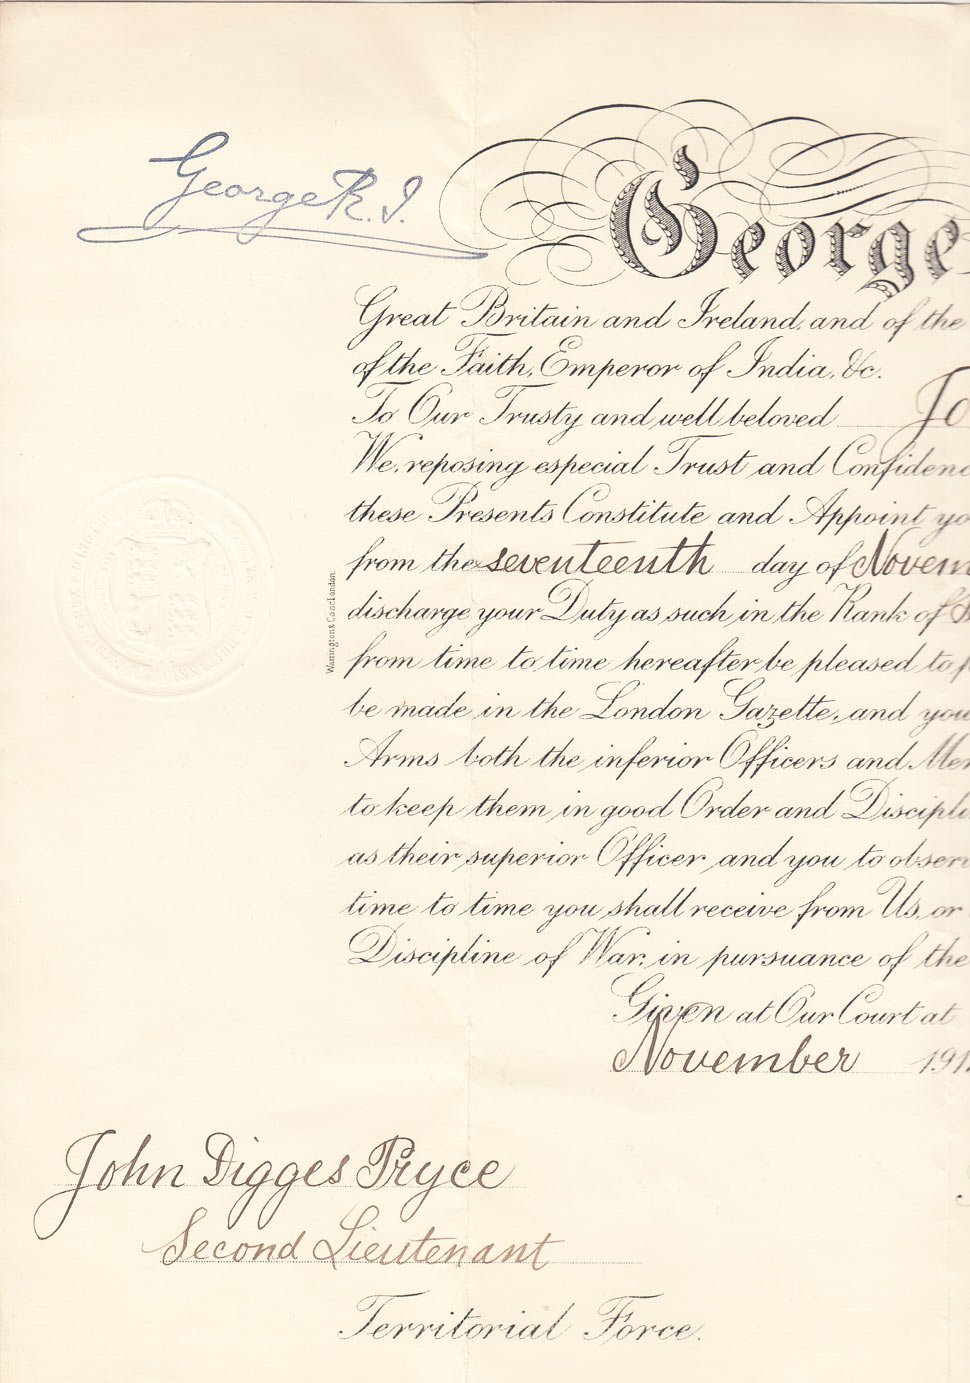 George R. I.
George
Great Britain and Ireland, and of the
of the Faith, Emperor of India, &c.
To Our Trusty and well beloved Jo
We, reposing especial Trust and Confidenc
these Presents Constitute and Appoint yo
from the seventeenth day of Novem
discharge your Duty as such in the Rank of S
from time to time hereafter be pleased to p
be made in the London Gazette, and you
Arms both the inferior Officers and Men
to keep them in good Order and Discipli
as their superior Officer and you to obser
time to time you shall receive from Us, or
Discipline of War, in pursuance of the
Given at Our Court at
November 191
Warrington & Co. London.
John Digges Pryce
Second Lieutenant
Territorial Force.